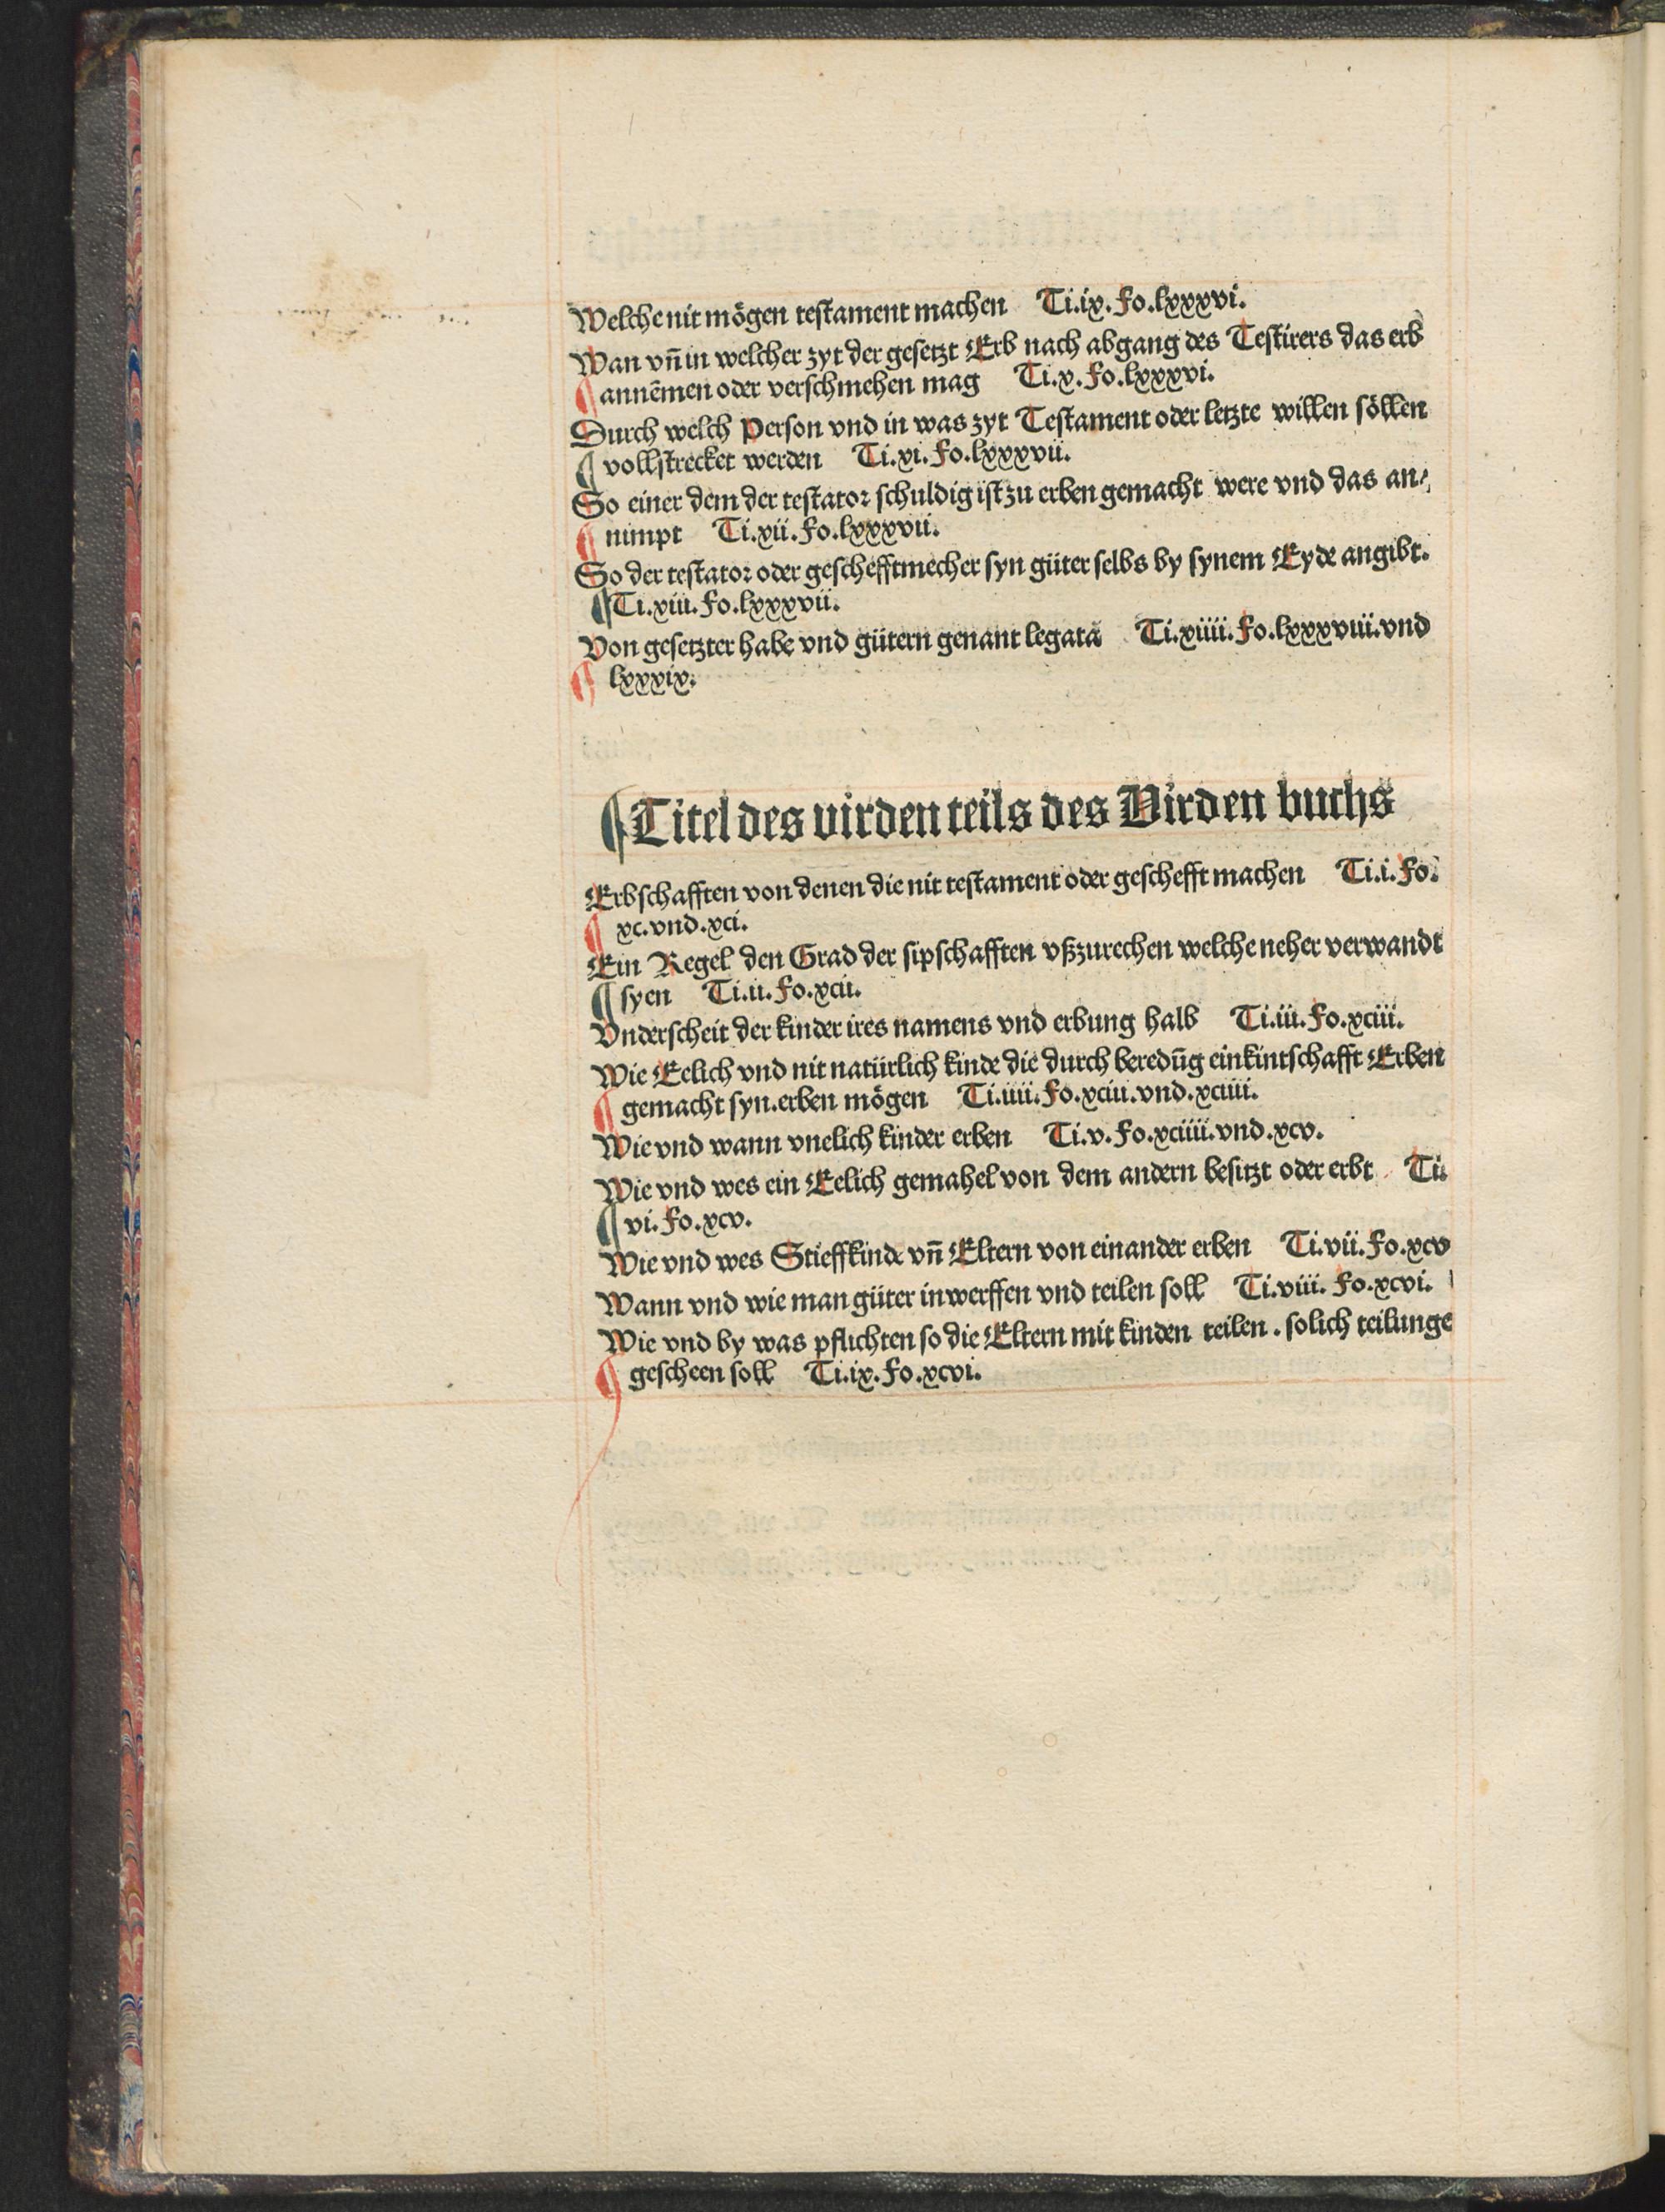 Welche nit mögen testament machen Ti.ix. Fo.lxxxvi.
Wan vn̄ in welcher zyt der gesetzt Erb nach abgang des Testirers das erb
¶ annēmen oder verschmehen mag Ti.x. Fo.lxxxvi.
Durch welch Person vnd in was zyt Testament oder letzte willen söllen
¶ vollstrecket werden Ti.xi. Fo.lxxxvii.
So einer dem der testator schuldig ist zu erben gemacht were vnd das an⸗
¶ nimpt Ti.xii. Fo.lxxxvii.
So der testator oder geschefftmecher syn güter selbs by synem Eyde angibt.
¶ Ti.xiii. Fo.lxxxvii.
Von gesetzter habe vnd gütern genant legata Ti.xiiii. Fo.lxxxviii.vnd
¶ lxxxix.
¶ Titel des virden teils des Virden buchs
Erbschafften von denen die nit testament oder gescheft machen Ti.i. Fo.
¶ xc.vnd.xci.
Ein Regel den Grad der sipschafften vßzurechen welche neher verwandt
¶ syen Ti.ii. Fo.xcii.
Vnderscheit der kinder ires namens vnd erbung halb Ti.iii. Fo.xciii.
Wie Eelich vnd nit natürlich kinde die durch beredūg einkintschafft Erben
¶ gemacht syn.erben mögen Ti.iiii. Fo.xciii.vnd.xciiii.
Wie vnd wann vnelich kinder erben Ti.v. Fo.xciiii.vnd.xcv.
Wie vnd wes ein Eelich gemahel von dem andern besitzt oder erbt Ti.
¶ vi. Fo.xcv.
Wie vnd wes Stieffkinde vn̄ Eltern von einander erben Ti.vii. Fo.xcv
Wann vnd wie man güter inwerffen vnd teilen soll Ti.viii. Fo.xcvi.
Wie vnd by was pflichten so die Eltern mit kinden teilen . solich teilunge
¶ gescheen soll Ti.ix. Fo.xcvi.